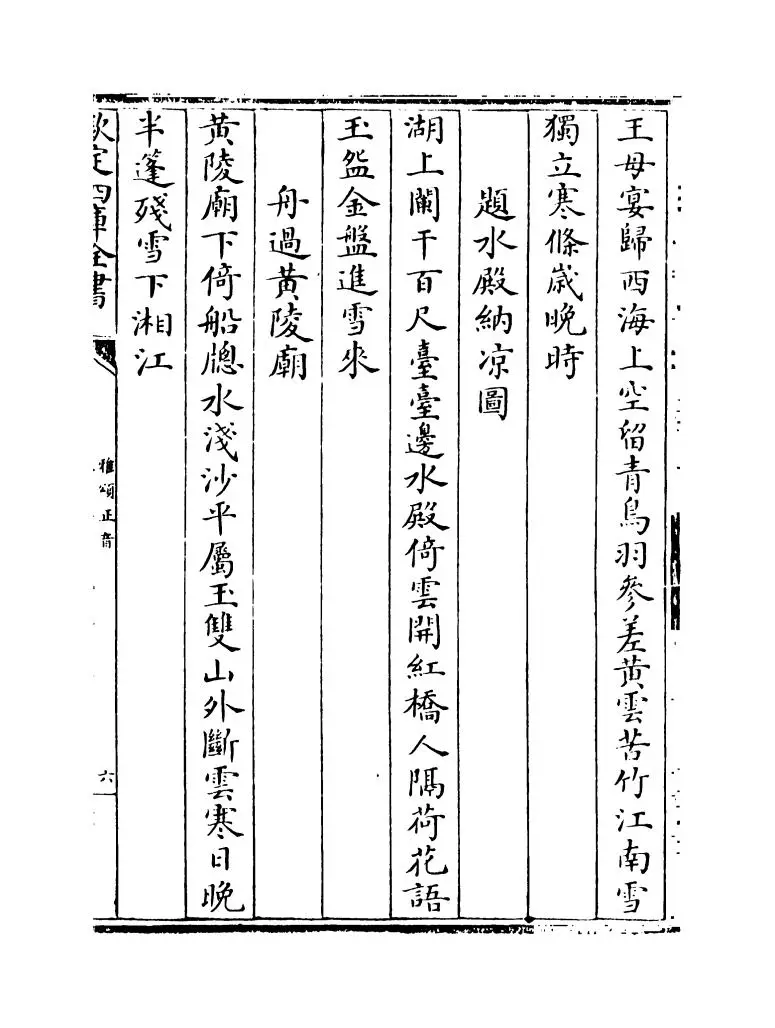 王母宴歸西海上空留青鳥羽參差黄雲苦竹江南雪
獨立寒條歳晩時
題水殿納凉圖
湖上闌干百尺臺臺邊水殿倚雲開紅橋人隔荷花語
玉盌金盤進雪來
舟過黄陵廟
黄陵廟下倚船牕水淺沙平屬玉雙山外斷雲寒日晚
半篷殘雪下湘江
欽定四庫全書
雅頌正音
六